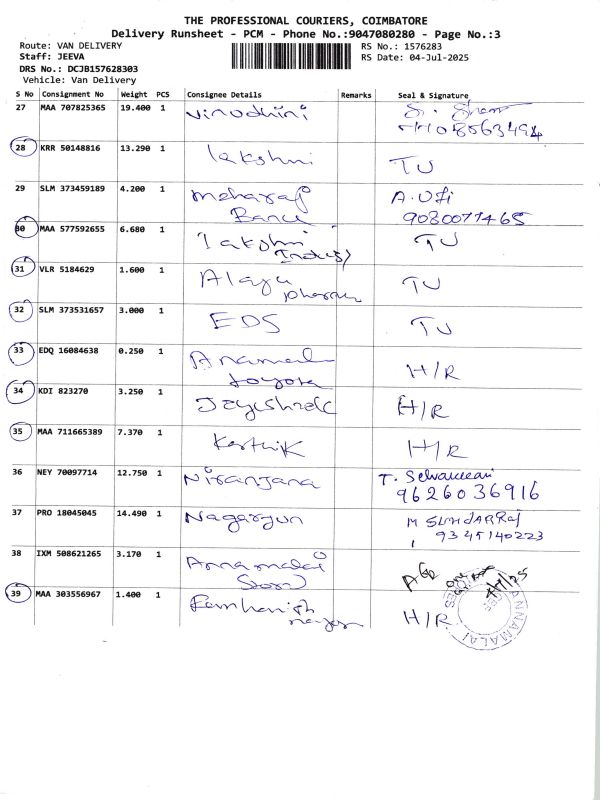 THE PROFESSIONAL COURIERS, COIMBATORE
Delivery Runsheet - PCM - Phone No.:9047080280 - Page No.:3
Route: VAN DELIVERY
RS No.: 1576283
Staff: JEEVA
RS Date: 04-Jul-2025
DRS No.: DCJB157628303
Vehicle: Van Delivery
S No Consignment No Weight PCS Consignee Details Remarks Seal & Signature
27 MAA 707825365 19.400 1 Virudhini
28 KRR 50148816 13.290 1 lakshmi TU
29 SLM 373459189 4.200 1 A.
9080077465
30 MAA 577592655 6.680 1 Lakshmi TU
31 VLR 5184629 1.600 1 Alaya TU
pharma
32 SLM 373531657 3.000 1 EDS TU
33 EDQ 16084638 0.250 1 H/R
toyota
34 KDI 823270 3.250 1 H/R
35 MAA 711665389 7.370 1 Karthik H/R
36 NEY 70097714 12.750 1 Niranjana T.
9626036916
37 PRO 18045045 14.490 1 Nagarjun M SUNDARRAJ
9345140223
38 IXM 508621265 3.170 1 Annamalai
39 MAA 303556967 1.400 1 H/R
ANNAMALAI